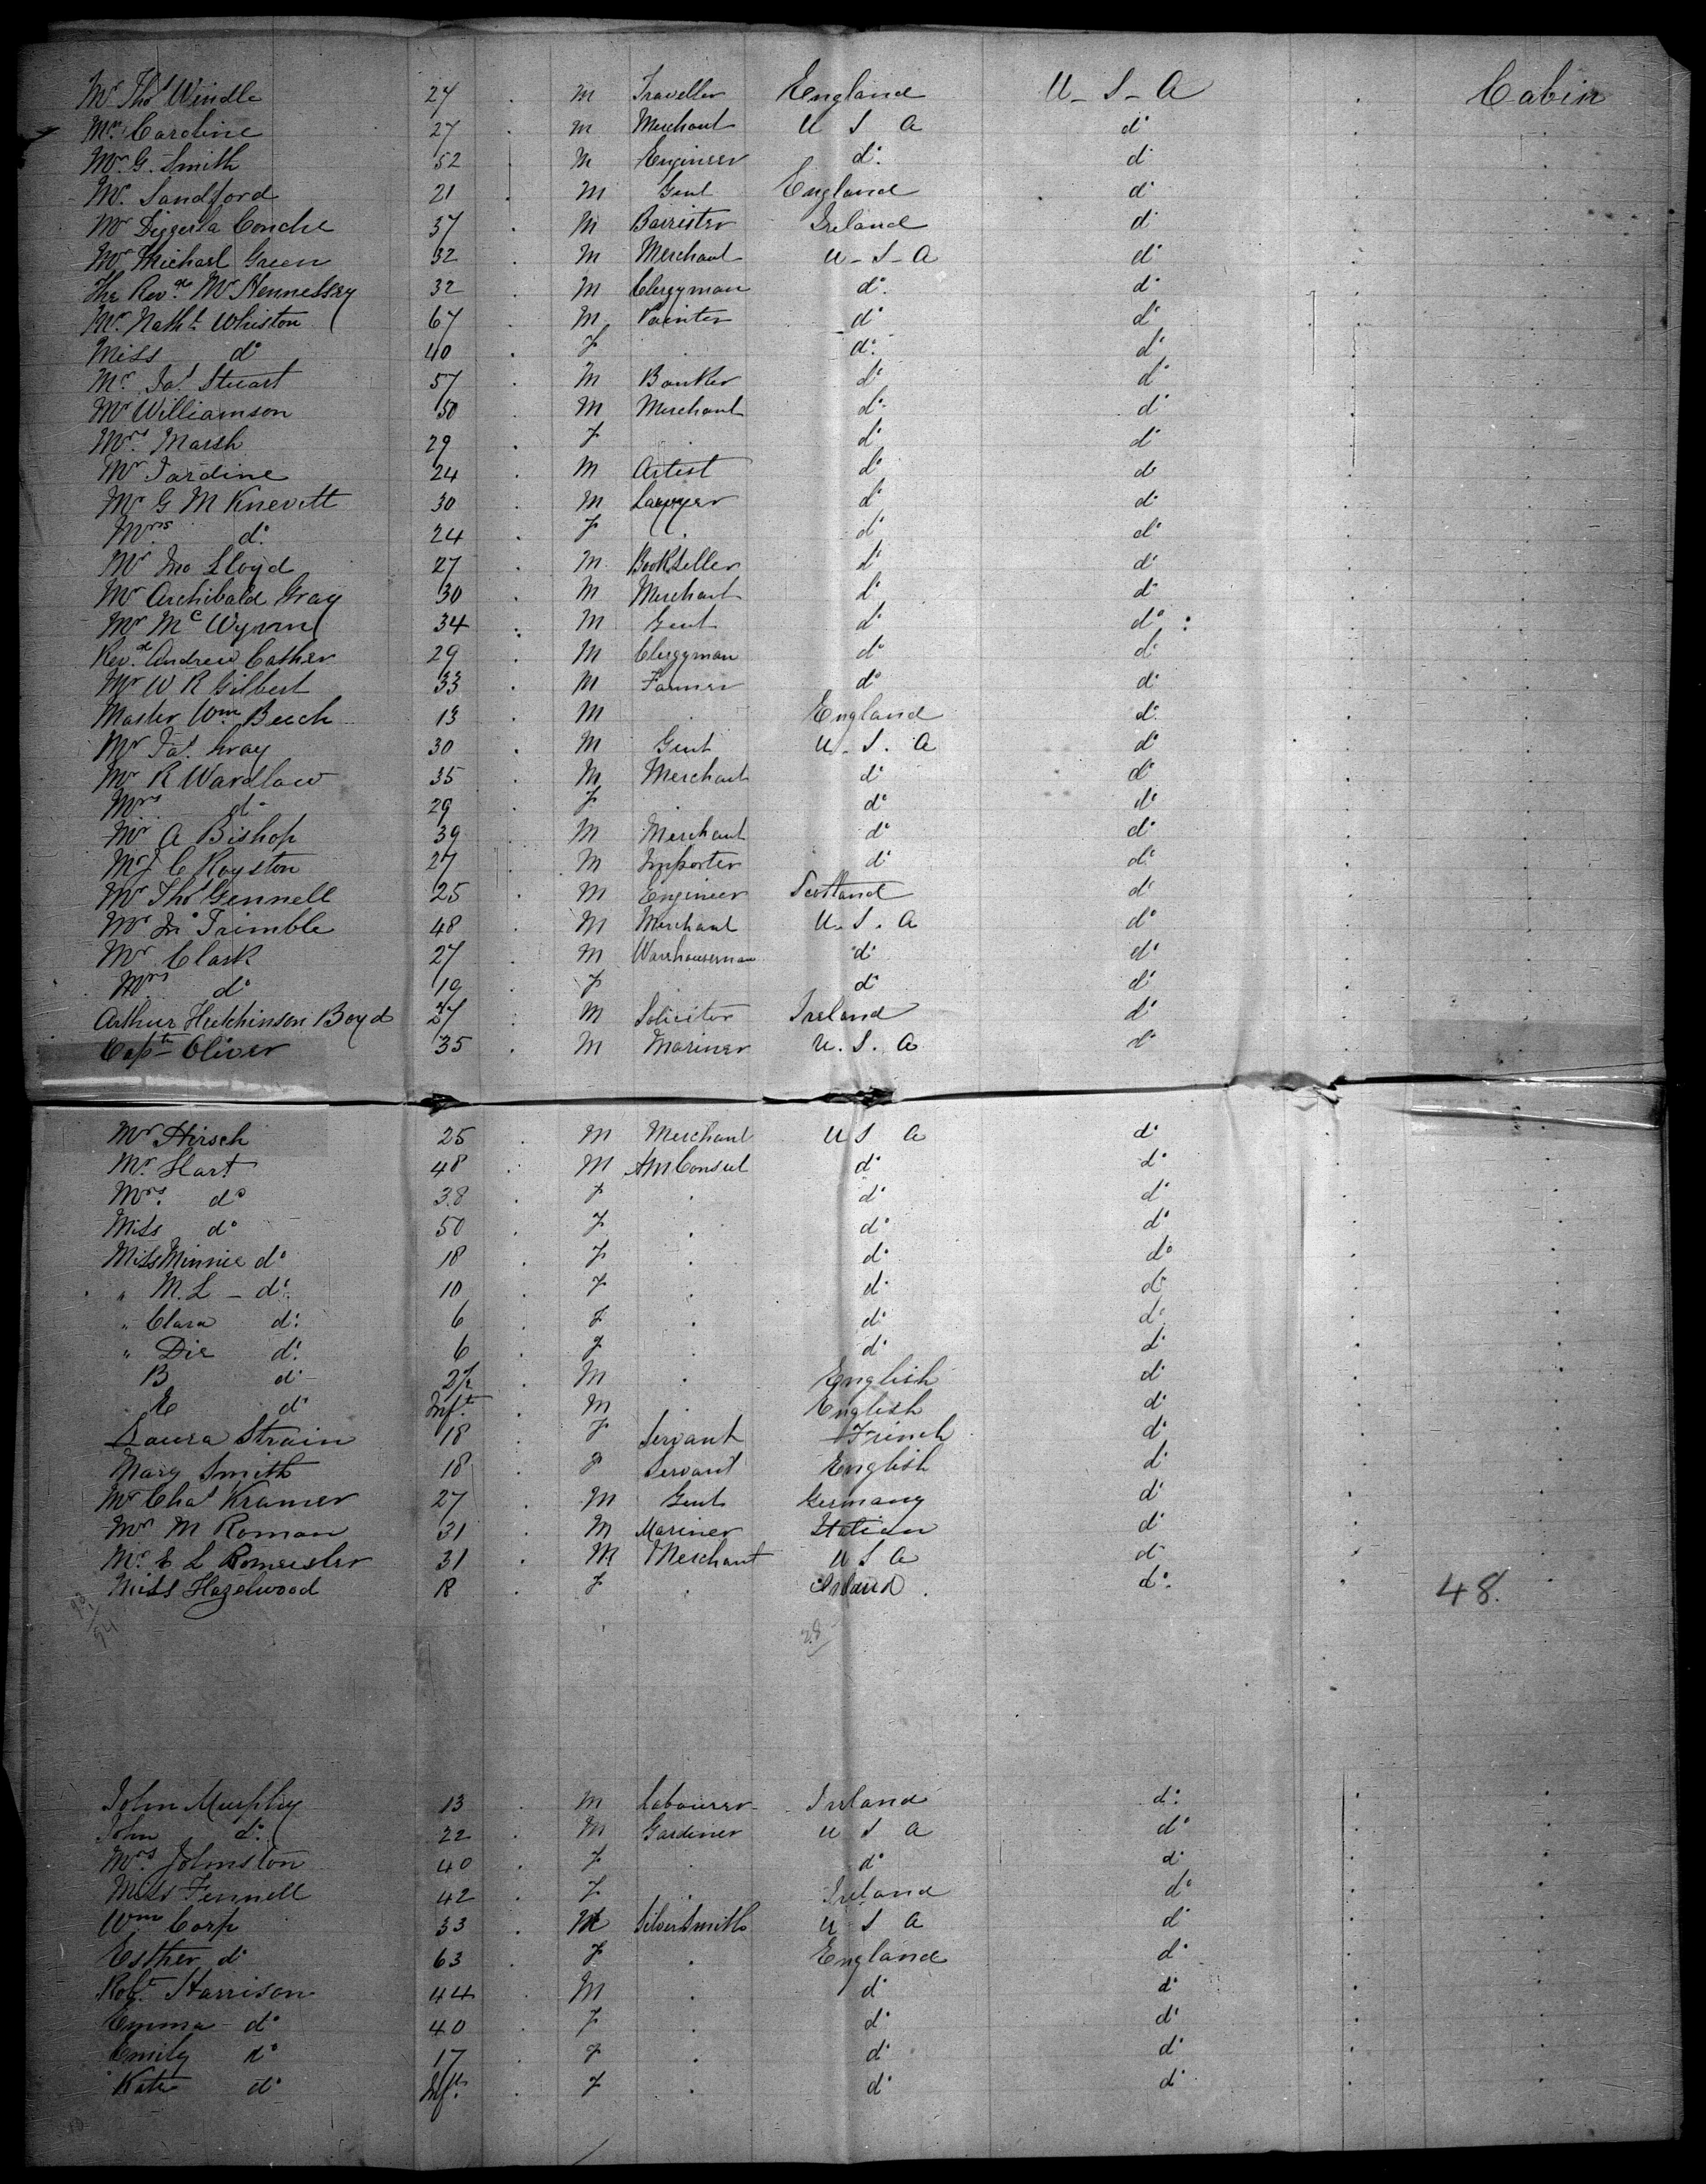 Mr Thos Windle 24 . M Traveller England U-S-A . Cabin
Mr Caroline 27 . M Merchant U S A do
Mr G. Smith 52 . M Engineer do do
Mr Sandford 21 . M Gent England do
Mr 37 . M Barrister Ireland do
Mr Michael Green 32 . M Merchant U-S-A do
The Revd Mr Hennessey 32 . M Clergyman do do
Mr Nathl Whiston 67 . M Painter do do
Miss do 40 . F . do do
Mr Jas Stuart 57 . M Banker do do
Mr Williamson 50 . M Merchant do do
Mrs Marsh 29 . F . do do
Mr Jardine 24 . M Artist do do
Mr G M Knevitt 30 . M Lawyer do do
Mrs do 24 . F . do do
Mr Jno Lloyd 27 . M Bookseller do do
Mr Archibald Gray 30 . M Merchant do do
Mr Mc Wynn 34 . M Gent do do
Revd Andrew Cather 29 . M Clergyman do do
Mr W R Gilbert 33 . M Farmer do do
Master Wm Beech 13 . M . England do
Mr Jas Gray 30 . M Gent U-S.A do
Mr R Wardlaw 35 . M Merchant do do
Mrs do 29 . F . do do
Mr A Bishop 39 M Merchant do do
Mr J C Royston 27 . M Importer do do
Mr Thos Gennell 25 . M Engineer Scotland do
Mr Jno Trimble 48 . M Merchant U.S.A do
Mr Clark 27 . M Warehouseman do do
Mrs do 19 . F . do do
Arthur Hutchinson Boyd 27 . M Solicitor Ireland do
Captn Oliver 35 . M Mariner U.S.A do
Mr Hirsch 25 . M Merchant U S A do
Mr Hart 48 . M AmConsul do do
Mrs do 38 . F . do do
Miss do 50 . F . do do
Miss Minnie do 18 . F . do do
" M.L - do 10 . F . do do
" Clara do 6 . F . do do
" Die do 6 . F . do do
B do 2½ . M . English do
E do Inft . M . English do
Laura Strain 18 . F Servant French do
Mary Smith 18 . F Servant English do
Mr Chas Kramer 27 . M Gent Germany do
Mr M Roman 31 . M Mariner Italian do
Mr E L 31 . M Merchant U S A do
Miss Hazelwood . F . Ireland do 48.
28
John Murphy 13 . M Labourer Ireland do
John do 22 . M Gardiner U S A do
Mrs Johnston 40 . F . do do
Miss Fennell 42 . F . Ireland do
Wm Corp 33 . M SilverSmith U S A do
Esther do 63 . F . England do
Robt Harrison 44 . M . do do
Emma do 40 . F . do do
Emily do 17 . F . do do
Kate do Inft . F . do do